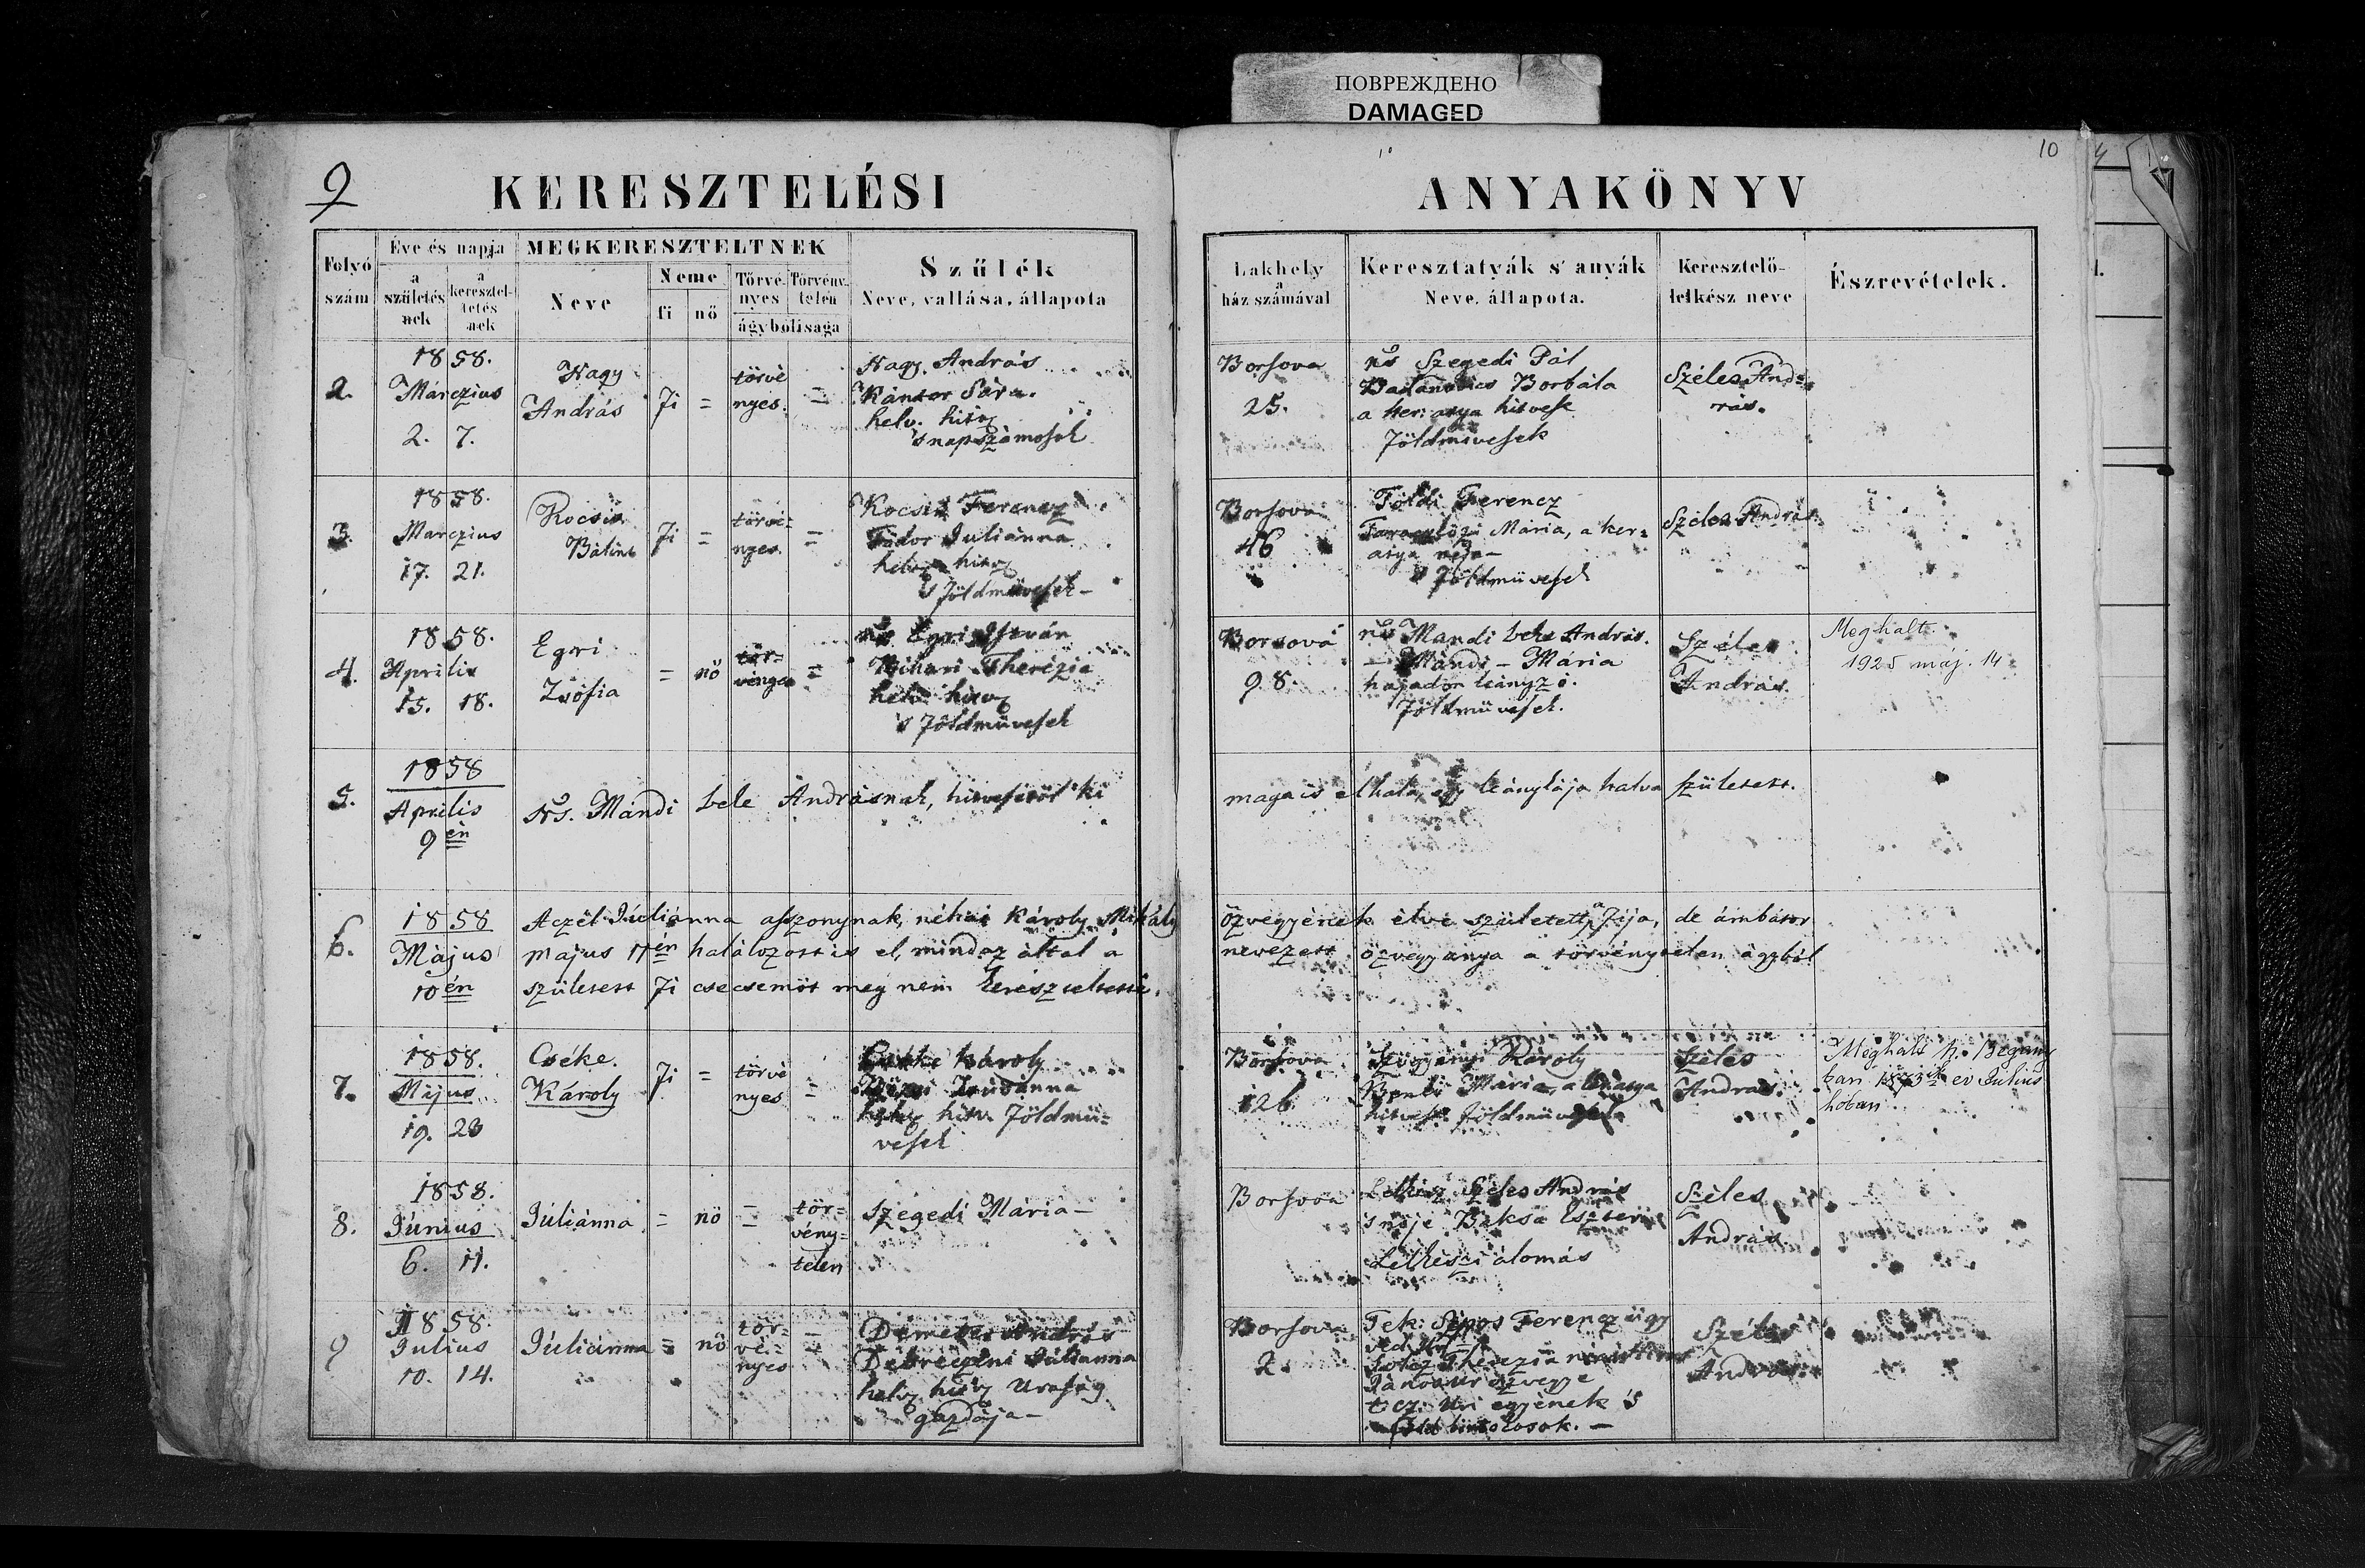 ПОВРЕЖДЕНО
DAMAGED
9
KERESZTELÉSI
ANYAKÖNYV
10
Folyó szám
Éve és napja
a születésnek
a kereszteltetésnek
MEGKERESZTELTNEK
Neve
Neme
fi
nő
Törvényes
Törvénytelen
ágybóli sága
Szülék
Neve, vallása, állapota
Lakhely
a ház számával
Keresztatyák s' anyák
Neve, állapota.
Keresztelő-
lelkész neve
Észrevételek.
2.
1858.
Márczius
2. 7.
Nagy
András
fi
=
törvé
nyes.
=
Nagy András
Kántor Sára.
helv. hitv
's napszámosok
Borsova
25.
ns Szegedi Pál
Borbála
a ker: atya hitvese
földmivesek
Széles And=
rás.
3.
1858.
Marczius
17. 21.
Kocsis
Bálint
fi
=
törvé=
nyes.
=
Kocsis Ferencz
Fodor Juliánna
helv. hitv
's földmüvesek-
Borsova
46
Földi Ferencz
Mária, a ker=
atya neje-
's földmüvesek
Széles András
4.
1858.
Aprilis
15. 18.
Egri
Zsófia
=
nő
tör=
vényes
=
ns Egri István
Bihari Therézia
helv. hitv
's földmüvesek
Borsova
98.
ns Mandi bele András.
- Mándi - Mária
hajadon leányzó.
földmüvesek.
Széles
András.
Meghalt
1925 máj. 14
5.
1858
Aprilis
9én
Ns. Mándi bele Andrásnak, hitvesétöl ki
maga is elhalt, egy leánykája halva született.
6.
1858
Május
10én
Aczél Juliánna asszonynak, néhai Károly Mihály
május 17én halálozott is el, mindaz által a
született fi csecsemöt meg nem kereszteltette.
özvegyének élve született fija, de ámbátor
nevezett özvegy anya a törvénytelen ágyból
7.
1858.
Május
19. 23
Cséke.
Károly
fi
=
törvé
nyes
=
Cséke Károly
Zsuzsánna
helv. hitv. földmü=
vesek
Borsova
126
Szögyényi Károly
Mária, a k. atya
hitvese földmüvesek
Széles
András.
Meghalt N. Begány
ban 1873ik év Julius
hóban
8.
1858.
Június
6. 11.
Júliánna
=
nő
=
tör=
vény=
telen
Szegedi Mária-
Borsova
Lelkész Széles András
's neje Baksa Eszter
Lelkészi álomás
Széles
András.
9
1858.
Julius
10. 14.
Júliánna
=
nő
tör=
vé=
nyes
=
Demeter András
Debreczeni Júliánna
helv. hitv Uraság
gazdája-
Borsova
2.
Tek: Sipos Ferencz ügy
véd
Therézia
János úr özvegye
t. cz. Úri egyének 's
birtokosok. -
Széles
András